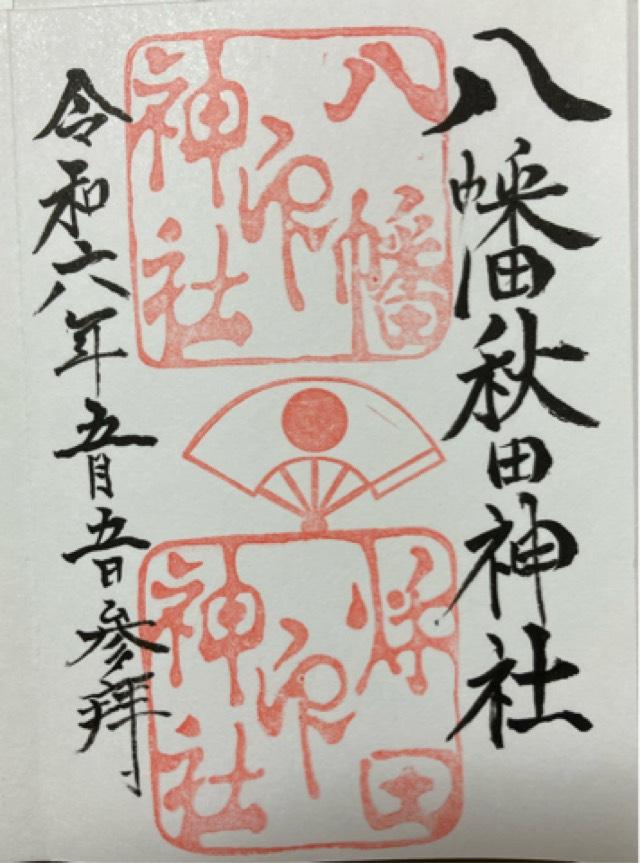 八幡秋田神社
八幡
神社
印
秋田
神社
印
令和六年五月五日参拝